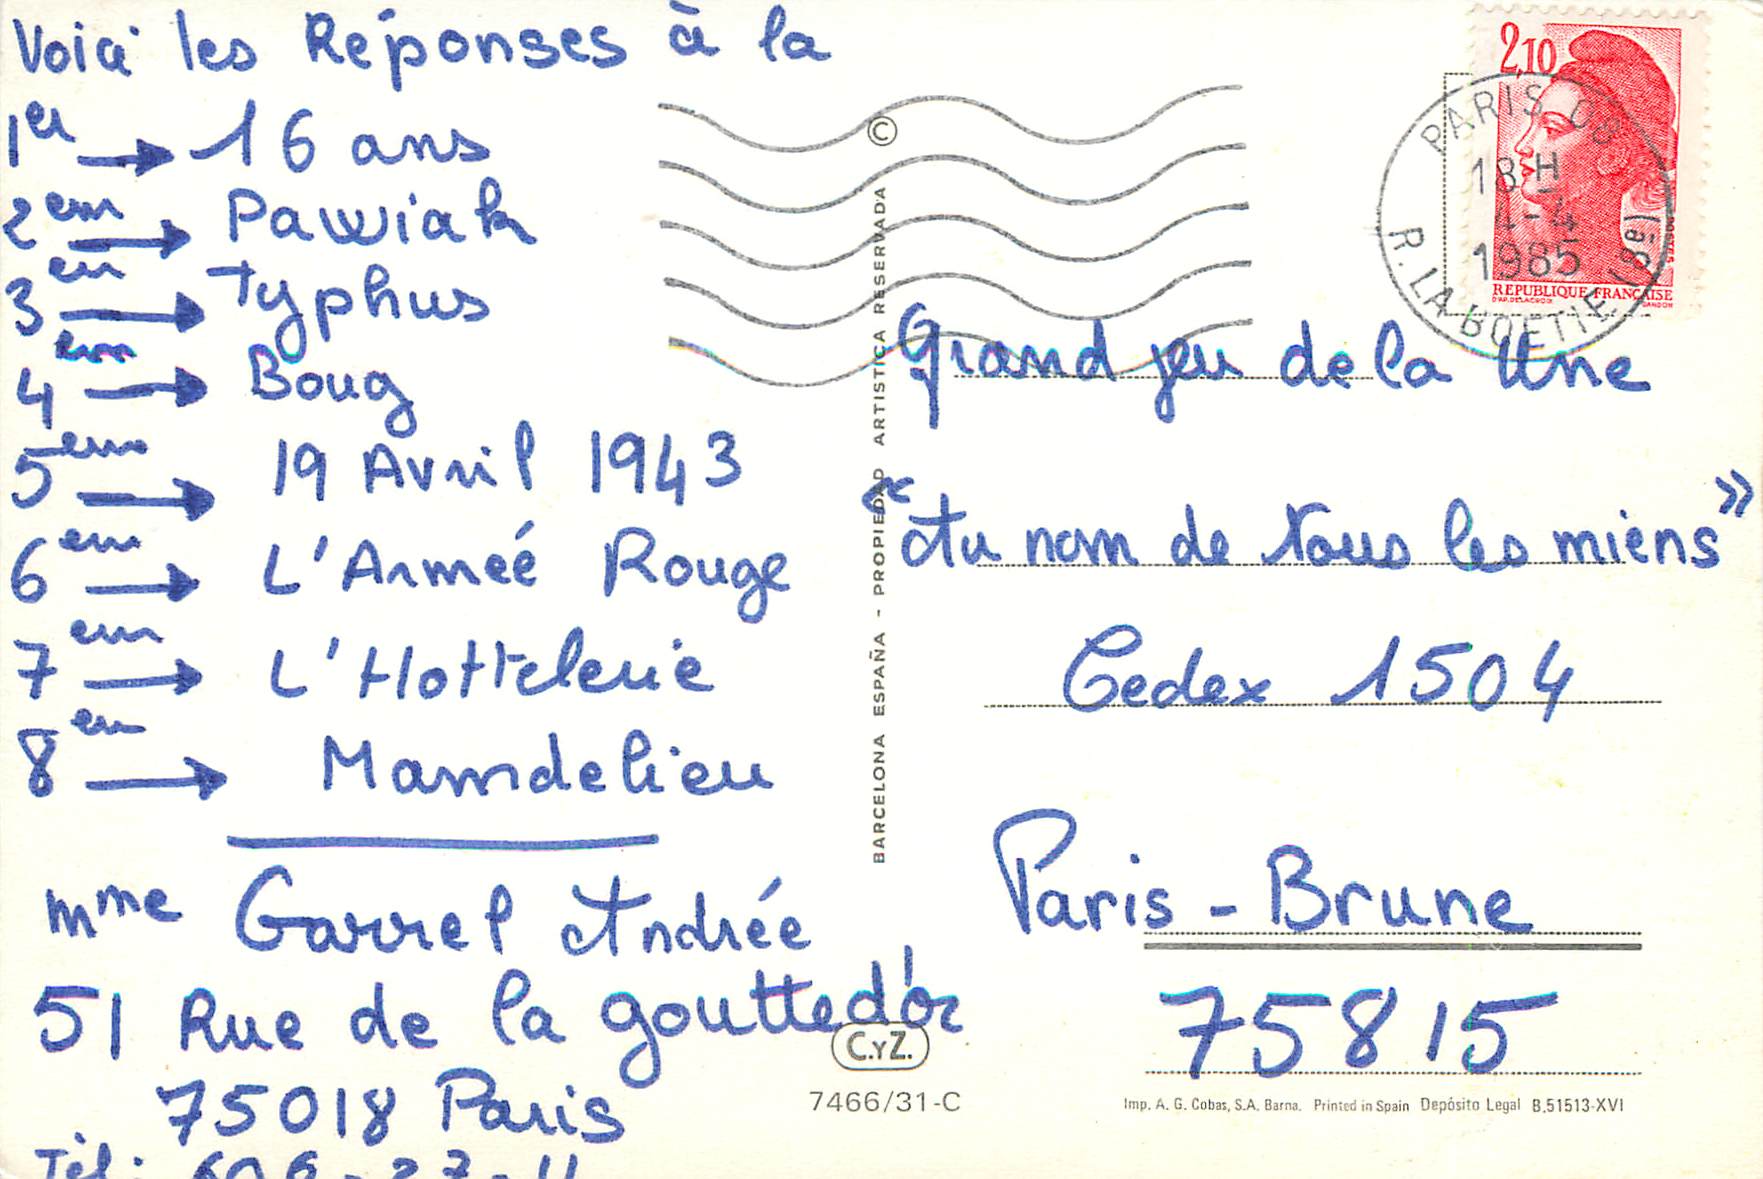 Voici les Réponses à la
1er → 16 ans
2em → Pawiak
3em → Typhus
4em → Boug
5em → 19 Avril 1943
6em → L'Armeé Rouge
7em → L'Hottelerie
8em → Mamdelieu
Mme Garrel Andrée
51 Rue de la goutted'or
75018 Paris
Tél:
©
BARCELONA ESPAÑA - PROPIEDAD ARTISTICA RESERVADA
C.YZ.
7466/31-C
2,10
REPUBLIQUE FRANÇAISE
D'AP. DELACROIX GANDON
PARIS 08
18 H
4-4
1985
R. LA BOETIE (8e)
Grand jeu de la Une
"Au nom de Tous les miens»
Cedex 1504
Paris - Brune
75815
Imp. A. G. Cobas, S.A. Barna. Printed in Spain Depósito Legal B.51513-XVI